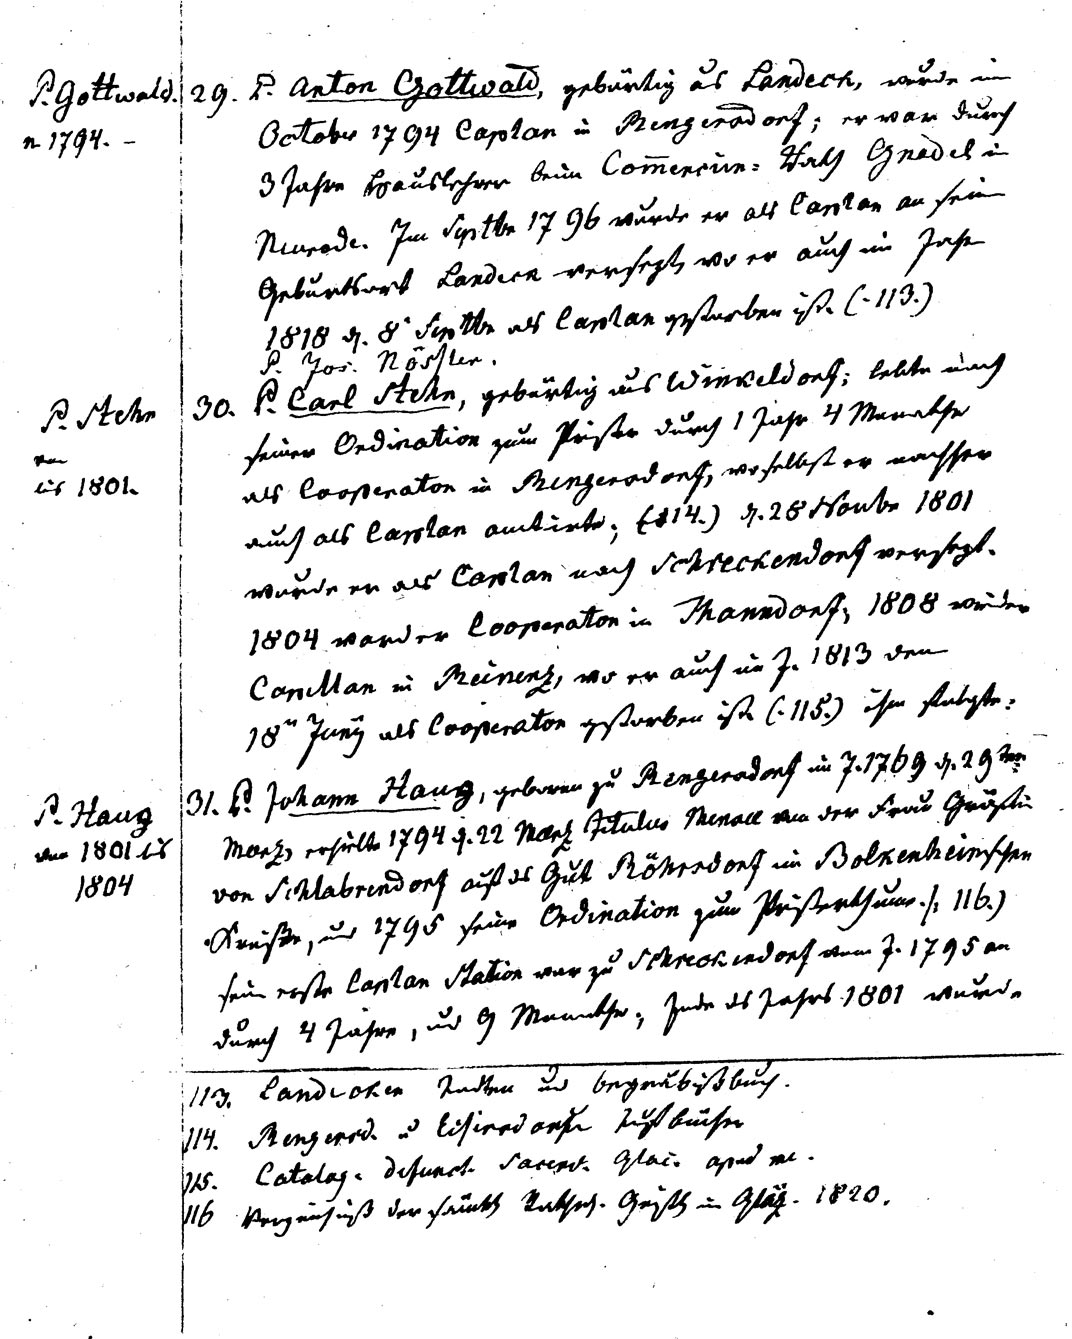 P. Gottwald.
n 1794. –
29. P. Anton Gottwald, gebürtig aus Landeck, wurde im
October 1794 Caplan in Rengersdorf; er war durch
3 Jahre Hauslehrer beim Commercien= Rath Gnädel in
Neurode. Im Septbr 1796 wurde er als Caplan an sein
Geburtsort Landeck versetzt, wo er auch im Jahr
1818 d. 8t Septbr als Caplan gestorben ist. (-113.)
P. Jos. Rößler.
P. Stehr
von
bis 1801.
30. P. Carl Stehr, gebürtig aus Winkeldorf; lebte nach
seiner Ordination zum Prister durch 1 Jahr 4 Monathe
als Cooperator in Rengersdorf, woselbst er nachher
auch als Caplan amtirte; (114.) d. 28 Novbr 1801
wurde er als Caplan nach Schreckendorf versetzt.
1804 ward er Cooperator in Thanndorf, 1808 wieder
Capellan in Reinerz, wo er auch im J. 1813 den
18n Juny als Cooperator gestorben ist (-115.) ihm folgte:
P. Haug
von 1801 bis
1804
31. P. Johann Haug, geboren zu Rengersdorf im J. 1769 d. 29ten
Maerz, erhielte 1794 d. 22 Maerz Titulus Mensae von der Frau Gräfin
von Schlabrendorf auf das Gut Röhrsdorf im Bolkenheinschen
Kreise, und 1795 seine Ordination zum Pristerthume. (116.)
sein erste Caplan Station war zu Schreckendorf vom J. 1795 an
durch 4 Jahre, und 9 Monathe, Ende des Jahrs 1801 wurde
113. Landecker Todten und begräbißbuch.
114. Rengersd. u Eisersdorfer Taufbücher
115. Catalog. defunct. Sacerd. Glac. apud me.
116 Verzeichniß der sämtl Kathol. Geistl in Glatz. 1820.